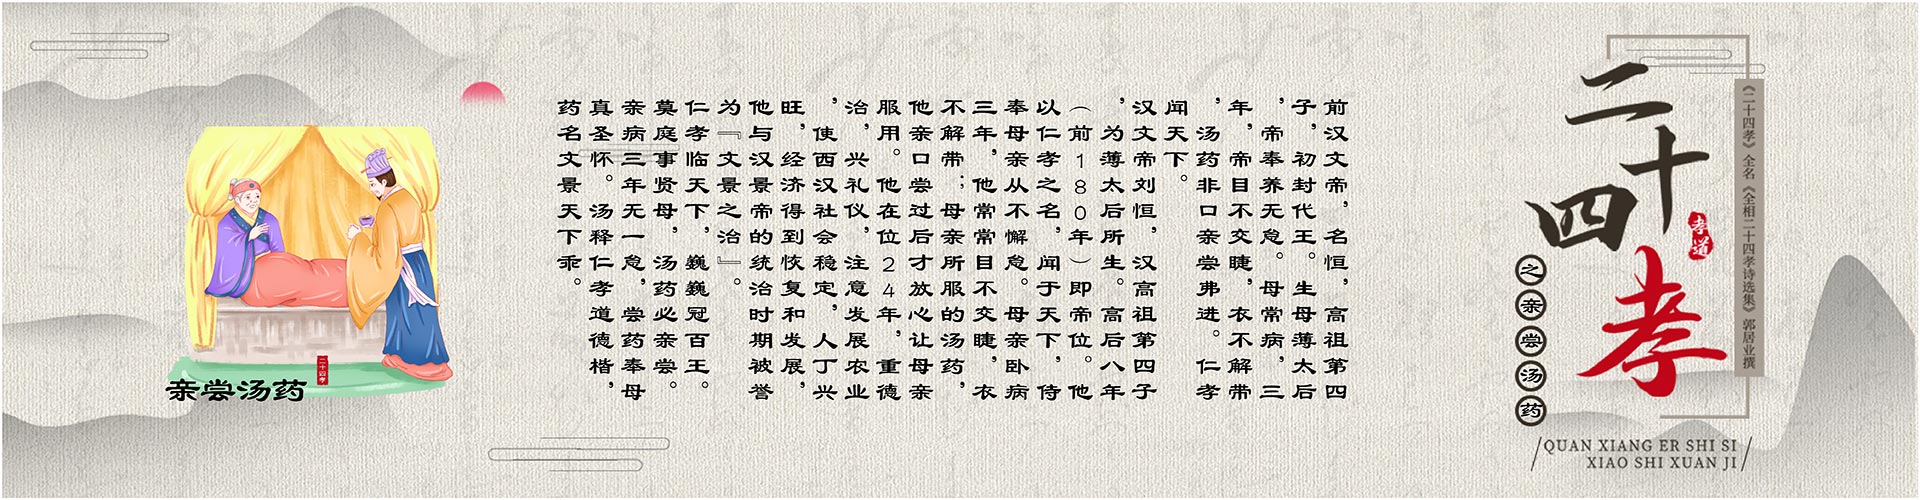 二十四孝
孝道
《二十四孝》全名《全相二十四孝诗选集》郭居业撰
之亲尝汤药
QUAN XIANG ER SHI SI
XIAO SHI XUAN JI
前汉文帝，名恒，高祖第四
子，初封代王。生母薄太后
，帝奉养无怠。母常病，三
年，帝目不交睫，衣不解带
，汤药非口亲尝弗进。仁孝
闻天下。
汉文帝刘恒，汉高祖第四子
，为薄太后所生。高后八年
（前180年）即帝位。他
以仁孝之名，闻于天下，侍
奉母亲从不懈怠。母亲卧病
三年，他常常目不交睫，衣
不解带；母亲所服的汤药，
他亲口尝过后才放心让母亲
服用。他在位24年，重德
治，兴礼仪，注意发展农业
，使西汉社会稳定，人丁兴
旺，经济得到恢复和发展，
他与汉景帝的统治时期被誉
为『文景之治』。
仁孝临天下，巍巍冠百王。
莫庭事贤母，汤药必亲尝。
亲病三年无一怠，尝药奉母
真圣怀。汤释仁孝道德楷，
药名文景天下乖。
二十四孝
亲尝汤药